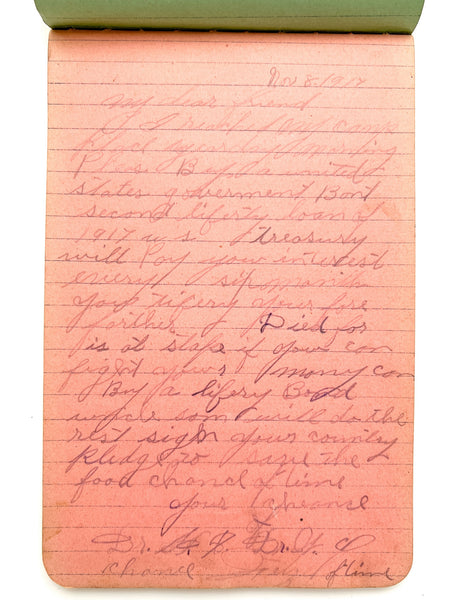 Nov 8 1917
My dear friend
I
place yesterday morning
Pleas Buy a united
states goverment Bont
second liferty loan of
1917 u s treasury
will Pay your interest
every six month
your lifery your fore
farther Died for
is at stape if your can
figtt yours mony can
By a lifery Bond
your som will do the
rest sign your country
pledge to save the
food chance of time
your chanse
Dr.
chance of time